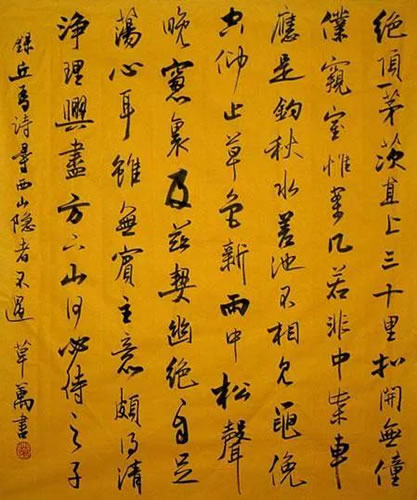 絕頂一茅茨直上三十里扣開無僮
僕窺室惟案几若非巾柴車
應是鈞秋水差池不相見黽俛
空仰止草色新雨中松聲
晚窻裏及茲契幽絕自足
蕩心耳雖無賓主意頗得清
淨理興盡方下山何必待之子
錄丘為詩尋西山隱者不遇 草萬書